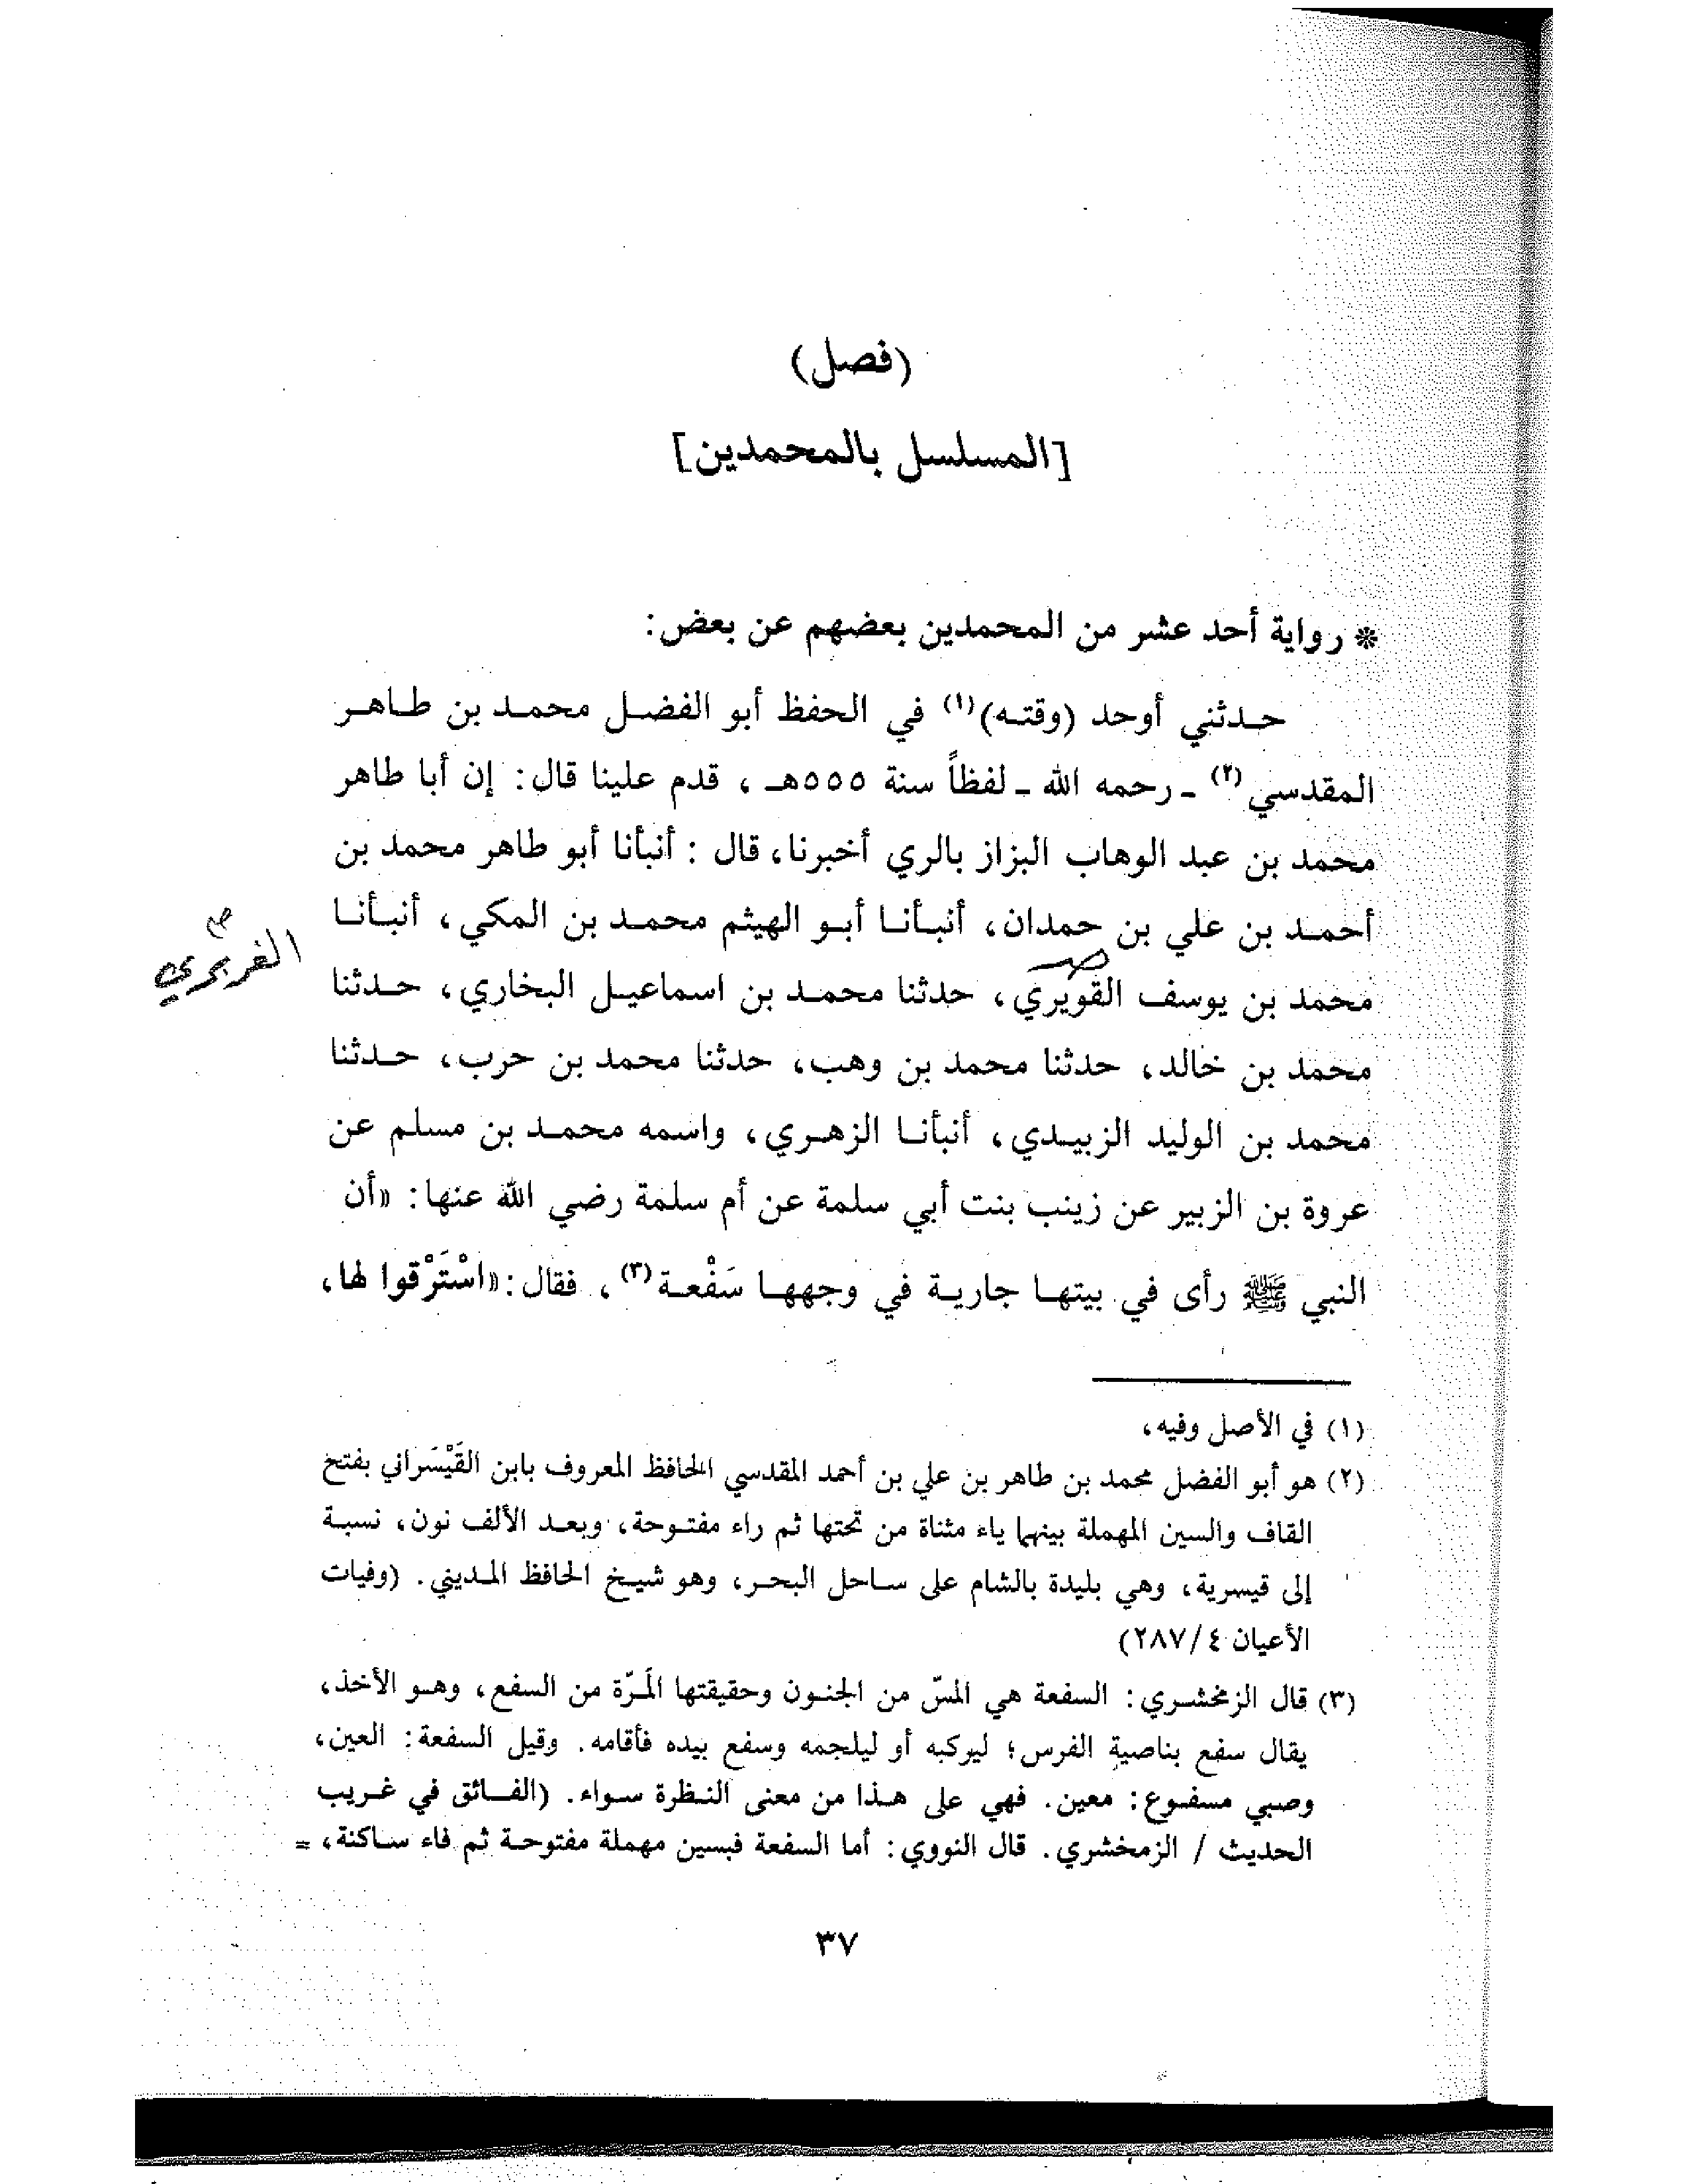 (فصل)
[المسلسل بالمحمدين]
* رواية أحد عشر من المحمدين بعضهم عن بعض:
حدثني أوحد (وقته)(١) في الحفظ أبو الفضل محمد بن طاهر
المقدسي(٢) ـ رحمه الله ـ لفظاً سنة ٥٥٥هـ ، قدم علينا قال: إن أبا طاهر
محمد بن عبد الوهاب البزاز بالري أخبرنا، قال : أنبأنا أبو طاهر محمد بن
أحمد بن علي بن حمدان، أنبأنا أبو الهيثم محمد بن المكي، أنبأنا
محمد بن يوسف القويري، حدثنا محمد بن اسماعيل البخاري، حدثنا
صح
الفربري
محمد بن خالد، حدثنا محمد بن وهب، حدثنا محمد بن حرب، حدثنا
محمد بن الوليد الزبيدي، أنبأنا الزهري، واسمه محمد بن مسلم عن
عروة بن الزبير عن زينب بنت أبي سلمة عن أم سلمة رضي الله عنها: «أن
النبي ﷺ رأى في بيتها جارية في وجهها سَفْعة(٣)، فقال: «اسْتَرْقوا لها،
(١) في الأصل وفيه،
(٢) هو أبو الفضل محمد بن طاهر بن علي بن أحمد المقدسي الحافظ المعروف بابن القَيْسَراني بفتح
القاف والسين المهملة بينهما ياء مثناة من تحتها ثم راء مفتوحة، وبعد الألف نون، نسبة
إلى قيسرية، وهي بليدة بالشام على ساحل البحر، وهو شيخ الحافظ المديني. (وفيات
الأعيان ٤/٢٨٧)
(٣) قال الزمخشري: السفعة هي المسّ من الجنون وحقيقتها المَرّة من السفع، وهو الأخذ،
يقال سفع بناصية الفرس؛ ليركبه أو ليلجمه وسفع بيده فأقامه. وقيل السفعة: العين،
وصبي مسفوع: معين. فهي على هذا من معنى النظرة سواء. (الفائق في غريب
الحديث / الزمخشري. قال النووي: أما السفعة فبسين مهملة مفتوحة ثم فاء ساكنة، =
٣٧